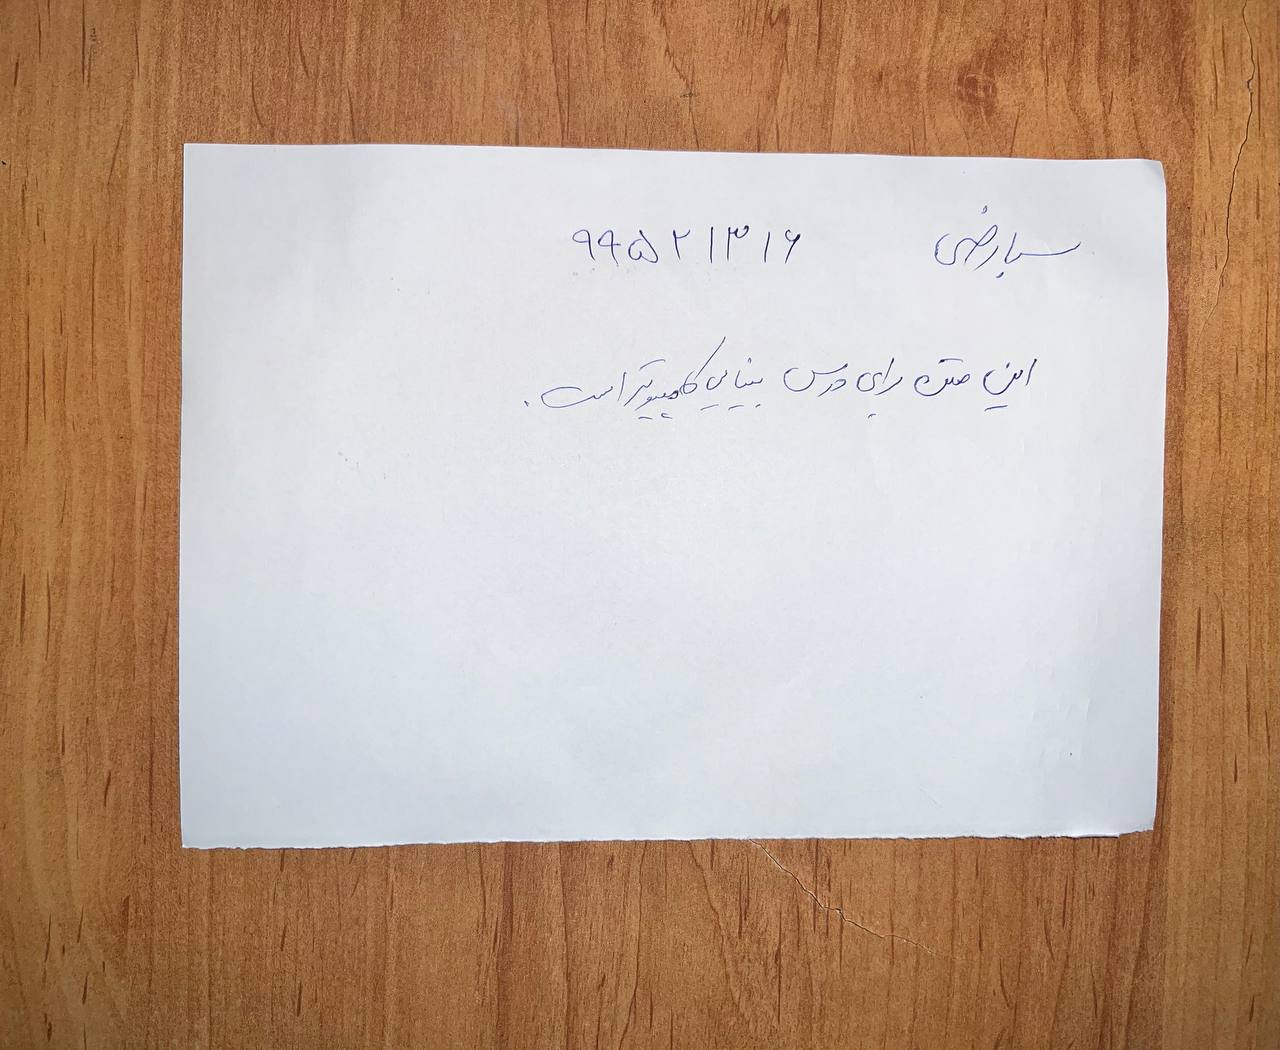 سبا رضی ۹۹۵۲۱۳۱۶
این متن برای درس بینایی کامپیوتر است.